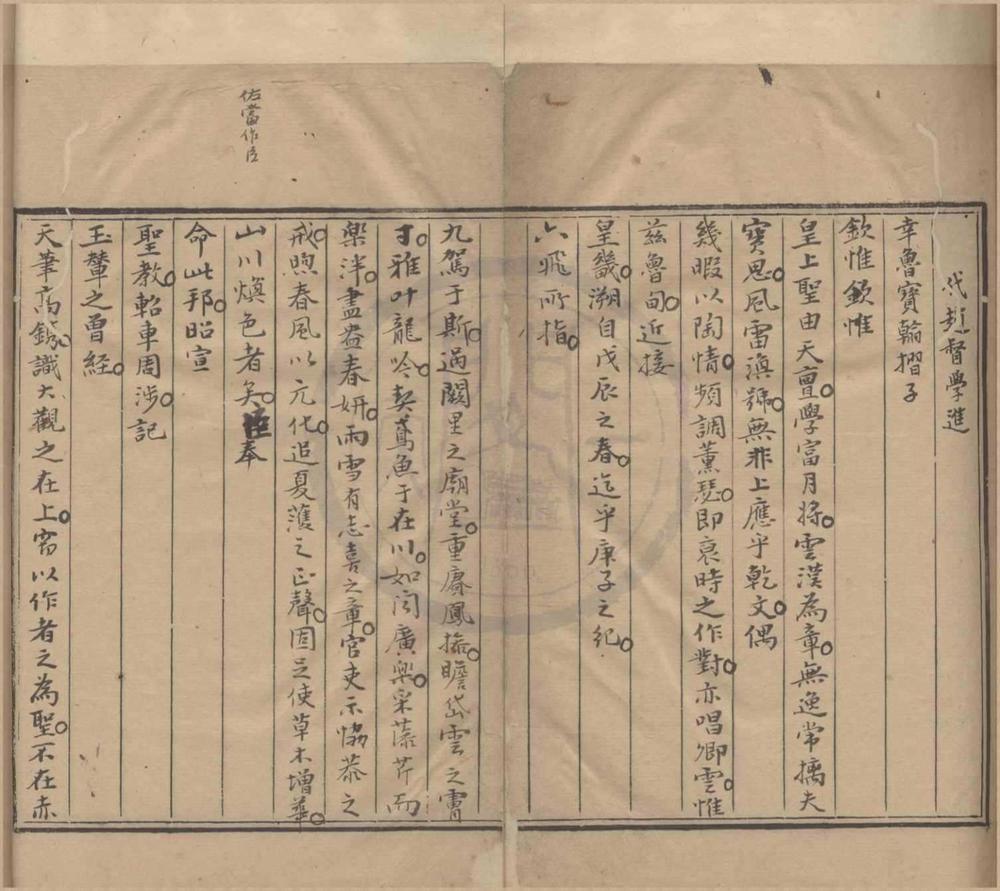 代趙督學進
幸魯寶翰摺子
欽惟欽惟
皇上聖由天亶學富月將雲漢為章無逸常摛夫
寶思風雷渙號無非上應乎乾文偶
幾暇以陶情頻調薰瑟即衷時之作對亦唱卿雲惟
茲魯甸近接
皇畿溯自戊辰之春迄乎庚子之紀
六飛所指
九駕于斯過闕里之廟堂重賡鳳摻瞻岱雲之膚
寸雅叶龍吟契鳶魚于在川如聞廣樂采藻芹而
樂泮盡盎春妍雨雪有志喜之章官吏示恊恭之
戒煦春風以元化追夏濩之正聲固足使草木增華
山川煥色者矣臣奉
命此邦昭宣
聖教軺車周涉記
玉輦之曾經
天筆高鐫識大觀之在上竊以作者之為聖不在赤
佑當作臣